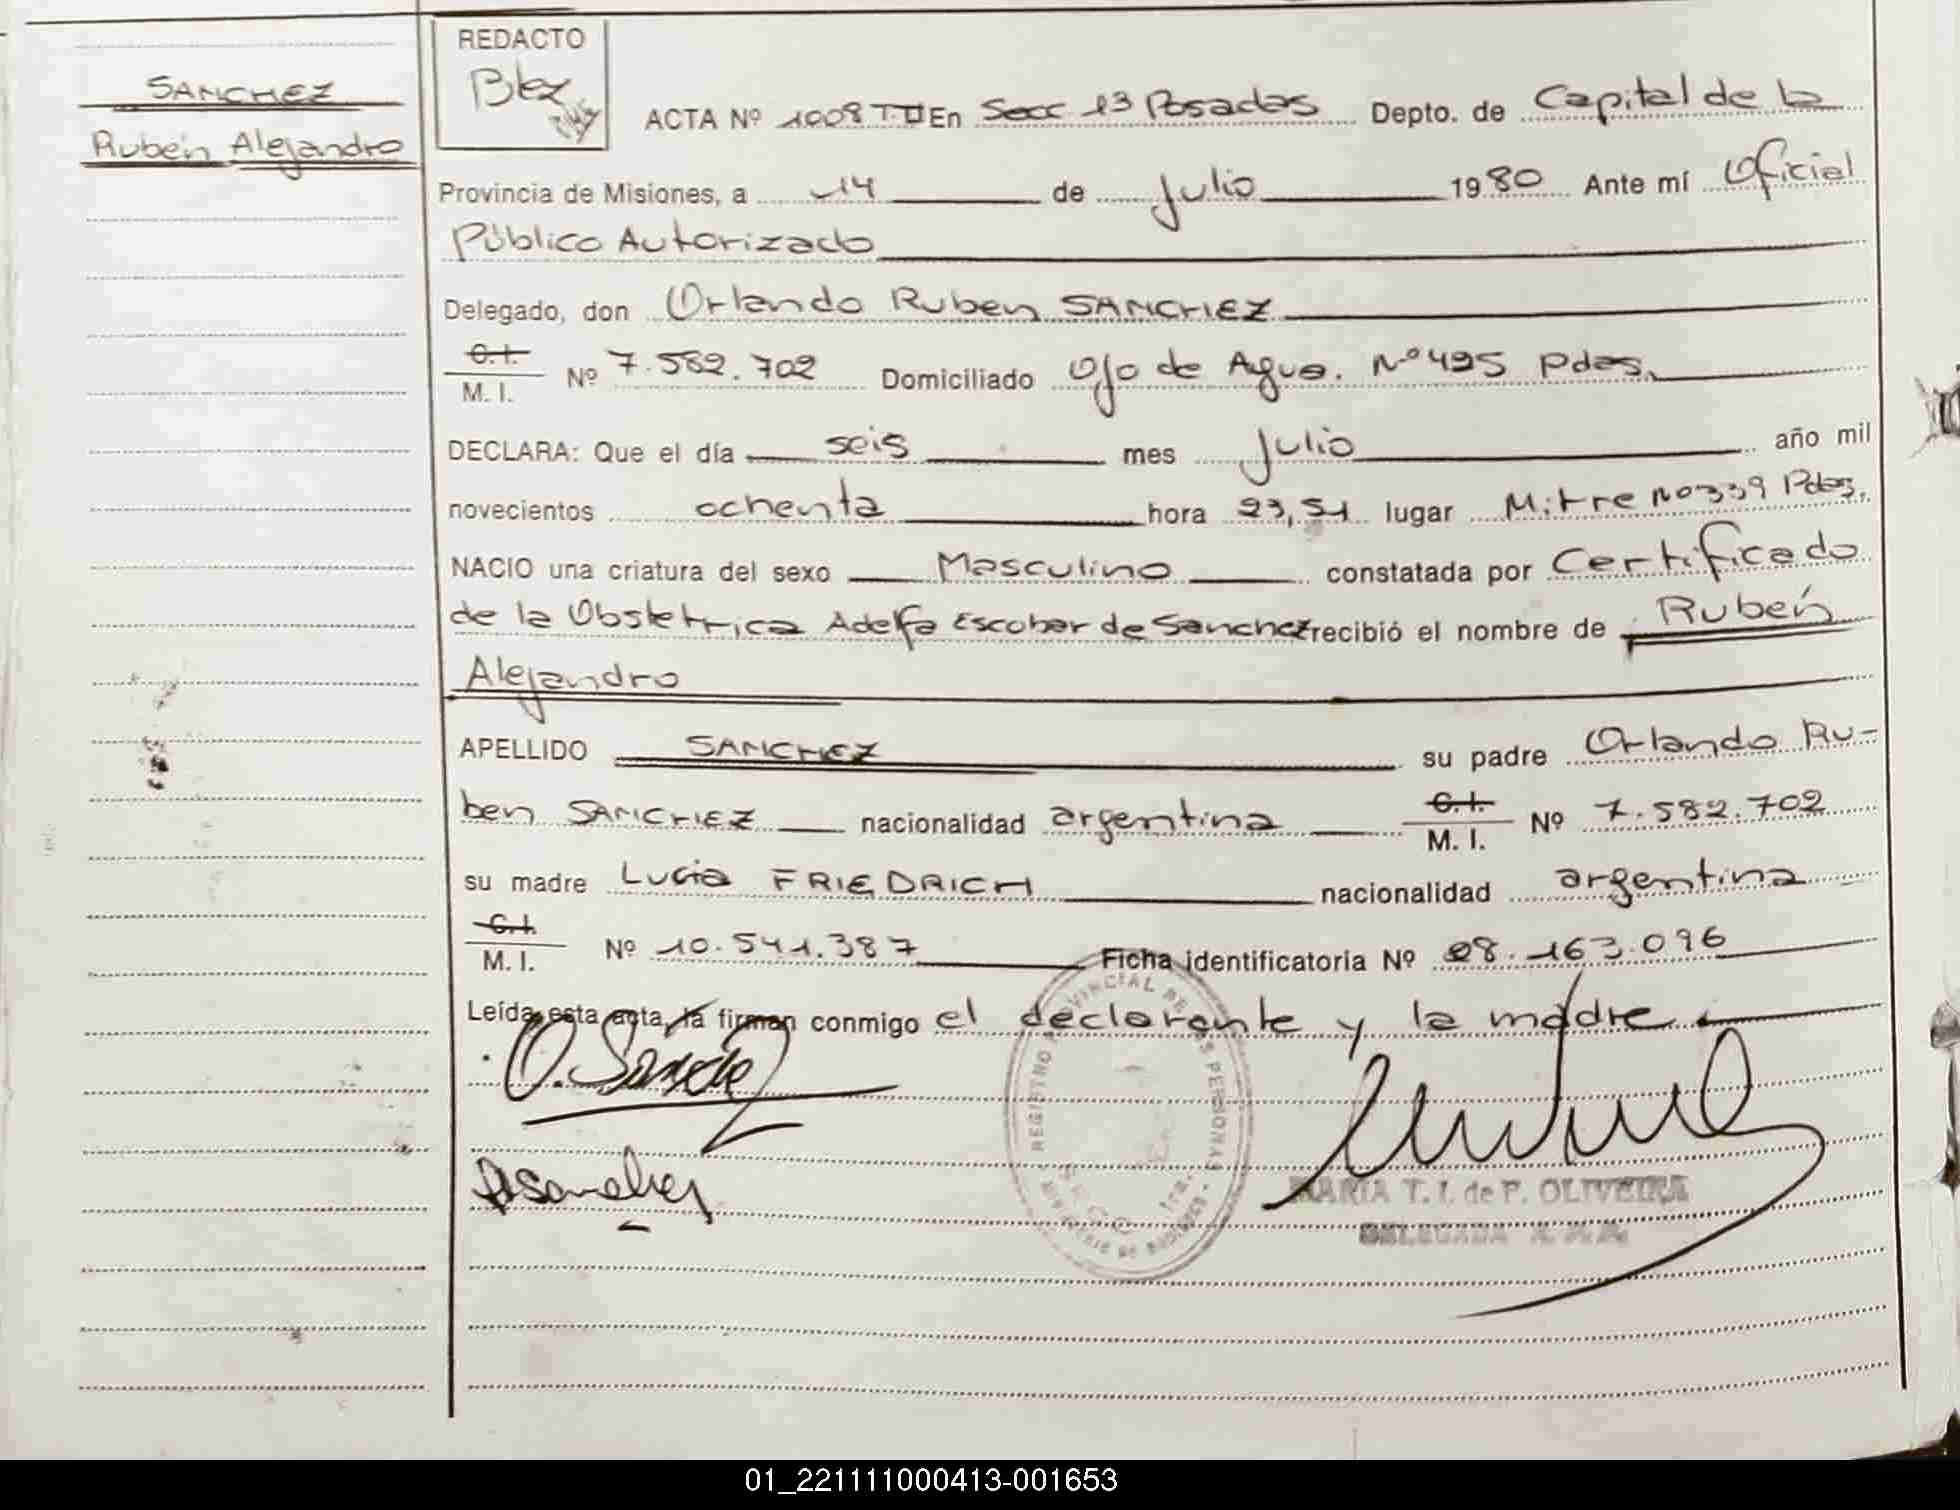 SANCHEZ
Rubén Alejandro
REDACTO
ACTA Nº 1008 T II En Secc 13 Posadas Depto. de Capital de la
Provincia de Misiones, a 14 de Julio 1980 Ante mí Oficial
Público Autorizado
Delegado, don Orlando Ruben SANCHEZ
C.I.
M. I. Nº 7.582.702 Domiciliado Ojo de Agua. Nº 495 Pdas.
DECLARA: Que el día seis mes Julio año mil
novecientos ochenta hora 23,51 lugar Mitre Nº 339 Pdas.
NACIO una criatura del sexo Masculino constatada por Certificado
de la Obstetrica Adelfa Escobar de Sanchez recibió el nombre de Rubén
Alejandro
APELLIDO SANCHEZ su padre Orlando Ru-
ben SANCHEZ nacionalidad argentina C.I. M. I. Nº 7.582.702
su madre Lucia FRIEDRICH nacionalidad argentina
C.I.
M. I. Nº 10.541.387 Ficha identificatoria Nº 28.163.096
Leída esta acta, la firman conmigo el declarante y la madre.
O. Sanchez
REGISTRO PROVINCIAL DE LAS PERSONAS
MARIA T. I. de P. OLIVEIRA
DELEGADA
01_221111000413-001653